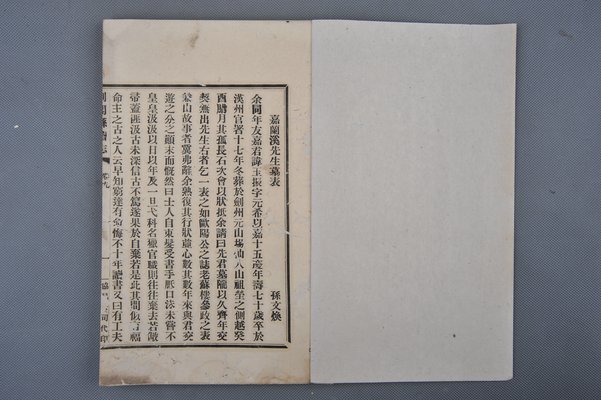 嘉蘭溪先生墓表
孫文煥
余同年友嘉君諱玉振字元希以嘉十五年壽七十歲卒於
漢州官署十七年冬葬於劍州元山場仙人山祖塋之側越癸
酉臘月其孤長石次會以狀抵余請曰先君墓隴以久齊年交
契無出先生右者乞一表之如歐陽公之誌老蘇樓參政之表
蒙山故事者冀弗辭余熟復其行狀盡心數其數年來與君交
遊之分之顛末而慨然曰士人自束髮受書手胝口沫未嘗不
皇皇汲汲以日以年及一旦弋科名職官職則往往棄去若敝
帚蓋匪汲古未深信古不篤遂果於自棄若是此其間似有福
命主之古之人云早知窮達有命悔不十年讀書又曰有工夫
志
卷九
司代印